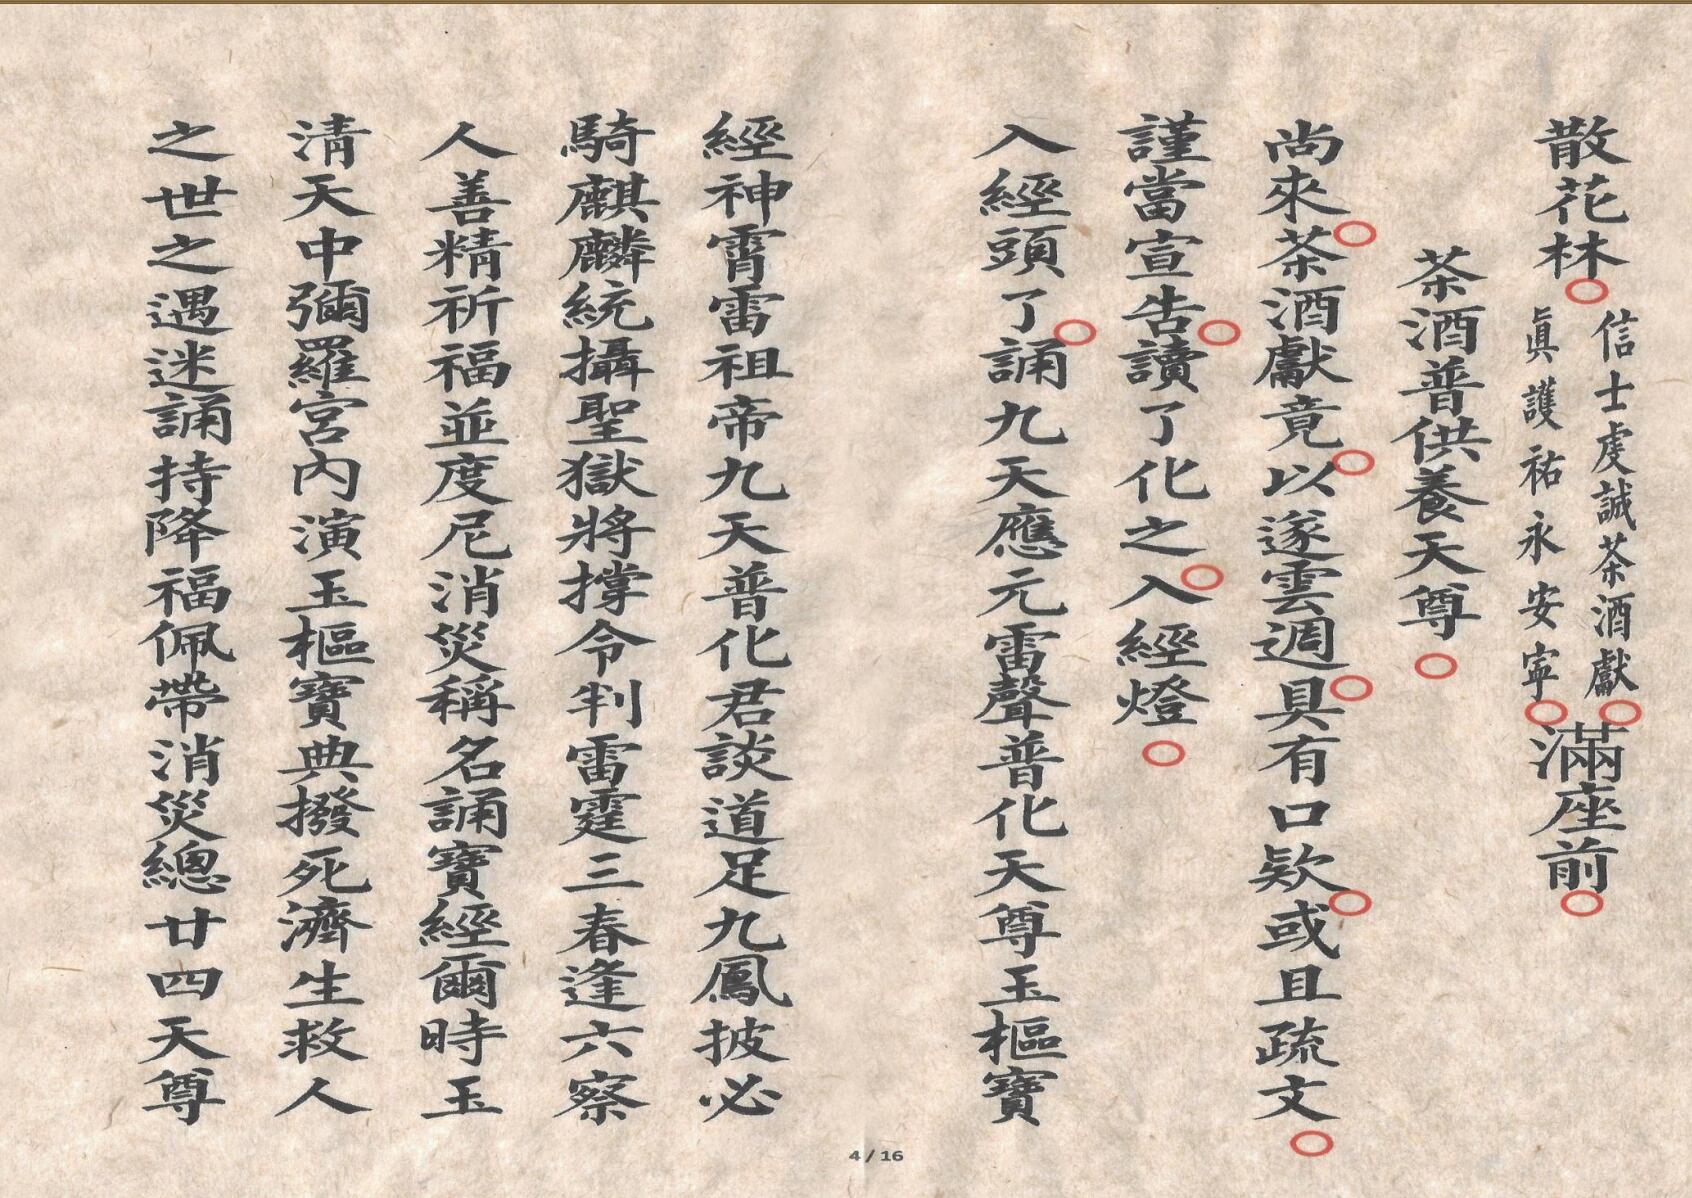 散花林
信士虔誠茶酒獻
眞護祐永安寧
滿座前
茶酒普供養天尊
尚來茶酒獻竟以遂雲週具有口欵或且疏文
謹當宣告讀了化之入經燈
入經頭了誦九天應元雷聲普化天尊玉樞寶
經神霄雷祖帝九天普化君談道足九鳳披必
騎麒麟統攝聖獄將撐令判雷霆三春逢六察
人善精祈福並度尼消災稱名誦寶經爾時玉
清天中彌羅宮內演玉樞寶典撥死濟生救人
之世之遇迷誦持降福佩帶消災總廿四天尊
4 / 16